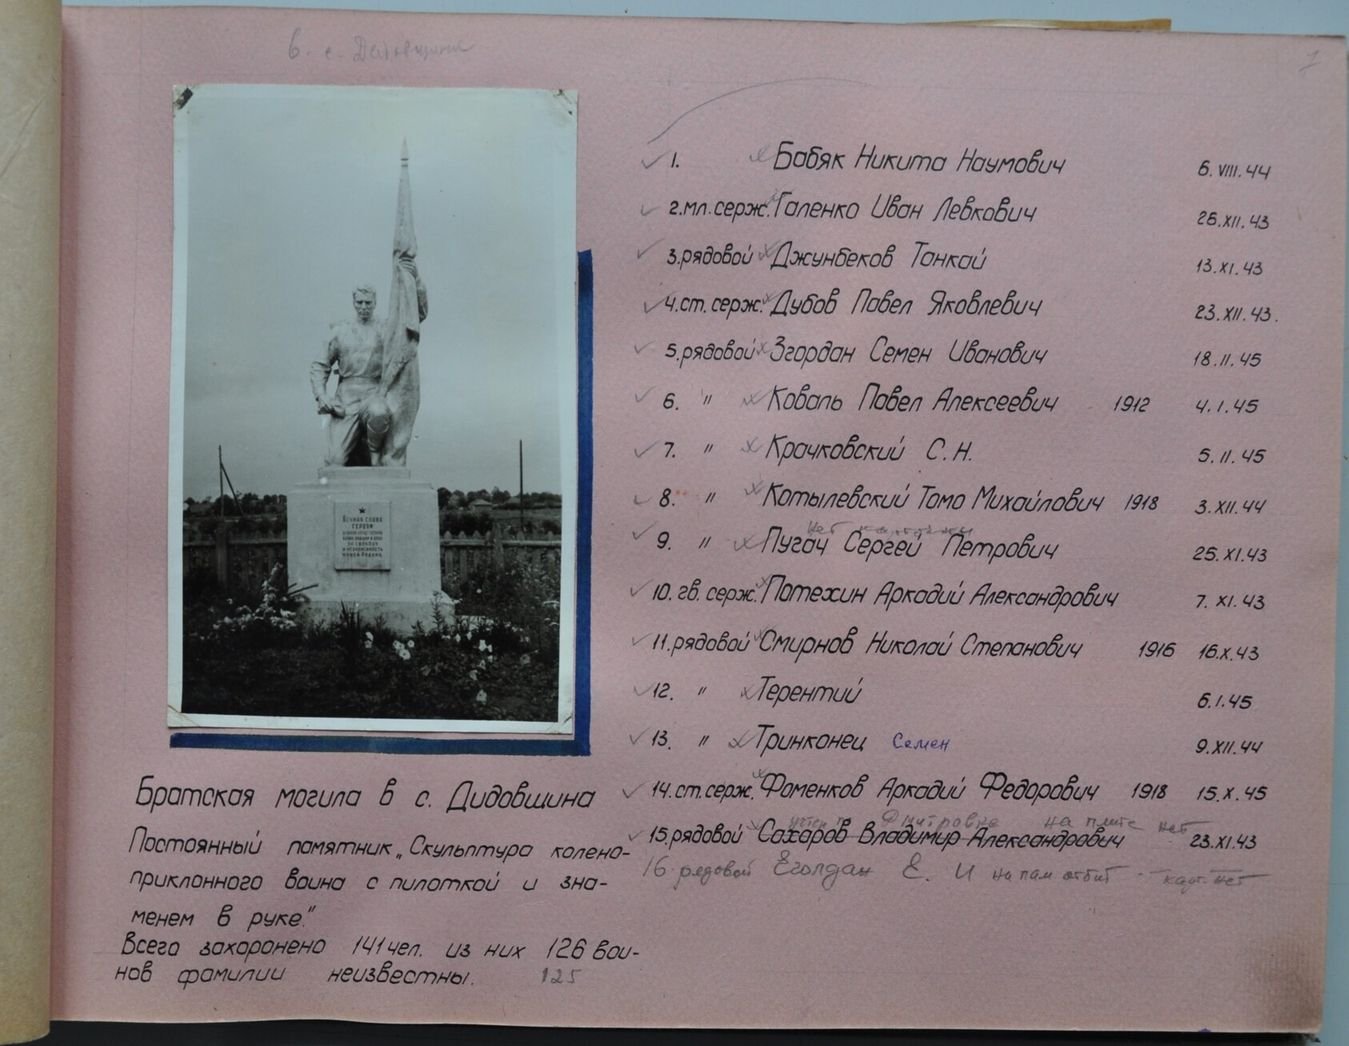 6. с. Дидовщина
7
1. Бабяк Никита Наумович 6.VIII.44
2. мл. серж. Галенко Иван Левкович 26.XII.43
3. рядовой Джунбеков Танкай 13.XI.43
4. ст. серж. Дубов Павел Яковлевич 23.XII.43.
5. рядовой Згордан Семен Иванович 18.II.45
6. " Коваль Павел Алексеевич 1912 4.I.45
7. " Крачковский С.Н. 5.II.45
8. " Котылевский Томо Михайлович 1918 3.XII.44
нет
9. " Пугач Сергей Петрович 25.XI.43
10. гв. серж. Потехин Аркадий Александрович 7.XI.43
11. рядовой Смирнов Николай Степанович 1916 16.X.43
12. " Терентий 6.I.45
13. " Тринконец Семен 9.XII.44
14. ст. серж. Фоменков Аркадий Федорович 1918 15.X.45
на плите нет
15. рядовой Сахаров Владимир Александрович 23.XI.43
16. рядовой Еголдан Е. И на пам карт. нет
Вечная слава
героям
за свободу
и независимость
нашей Родины
Братская могила в с. Дидовщина
Постоянный памятник „Скульптура колено-
приклонного воина с пилоткой и зна-
менем в руке."
Всего захоронено 141 чел. из них 126 вои-
нов фамилии неизвестны. 125